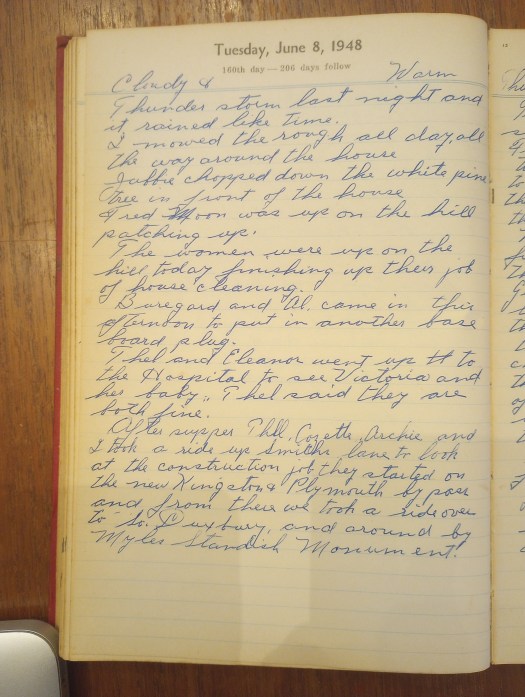 Tuesday, June 8, 1948
160th day—206 days follow
Cloudy & Warm
Thunder storm last night and
it rained like time.
I mowed the rough all day, all
the way around the house
chopped down the white pine
tree in front of the house
Fred Moon was up on the hill
patching up.
The women were up on the
hill today finishing up their job
of house cleaning.
Buregard and Al. came in this
afternoon to put in another base
board plug.
Thel and Eleanor went up to
the Hospital to see Victoria and
her baby,. Thel said they are
both fine.
After supper Thel, Cozette, Archie, and
I took a ride up Smiths lane to look
at the construction job they started on
the new Kingston & Plymouth by pass
and from there we took a ride over
to So. Duxbury, and around by
Myles Standish Monument.